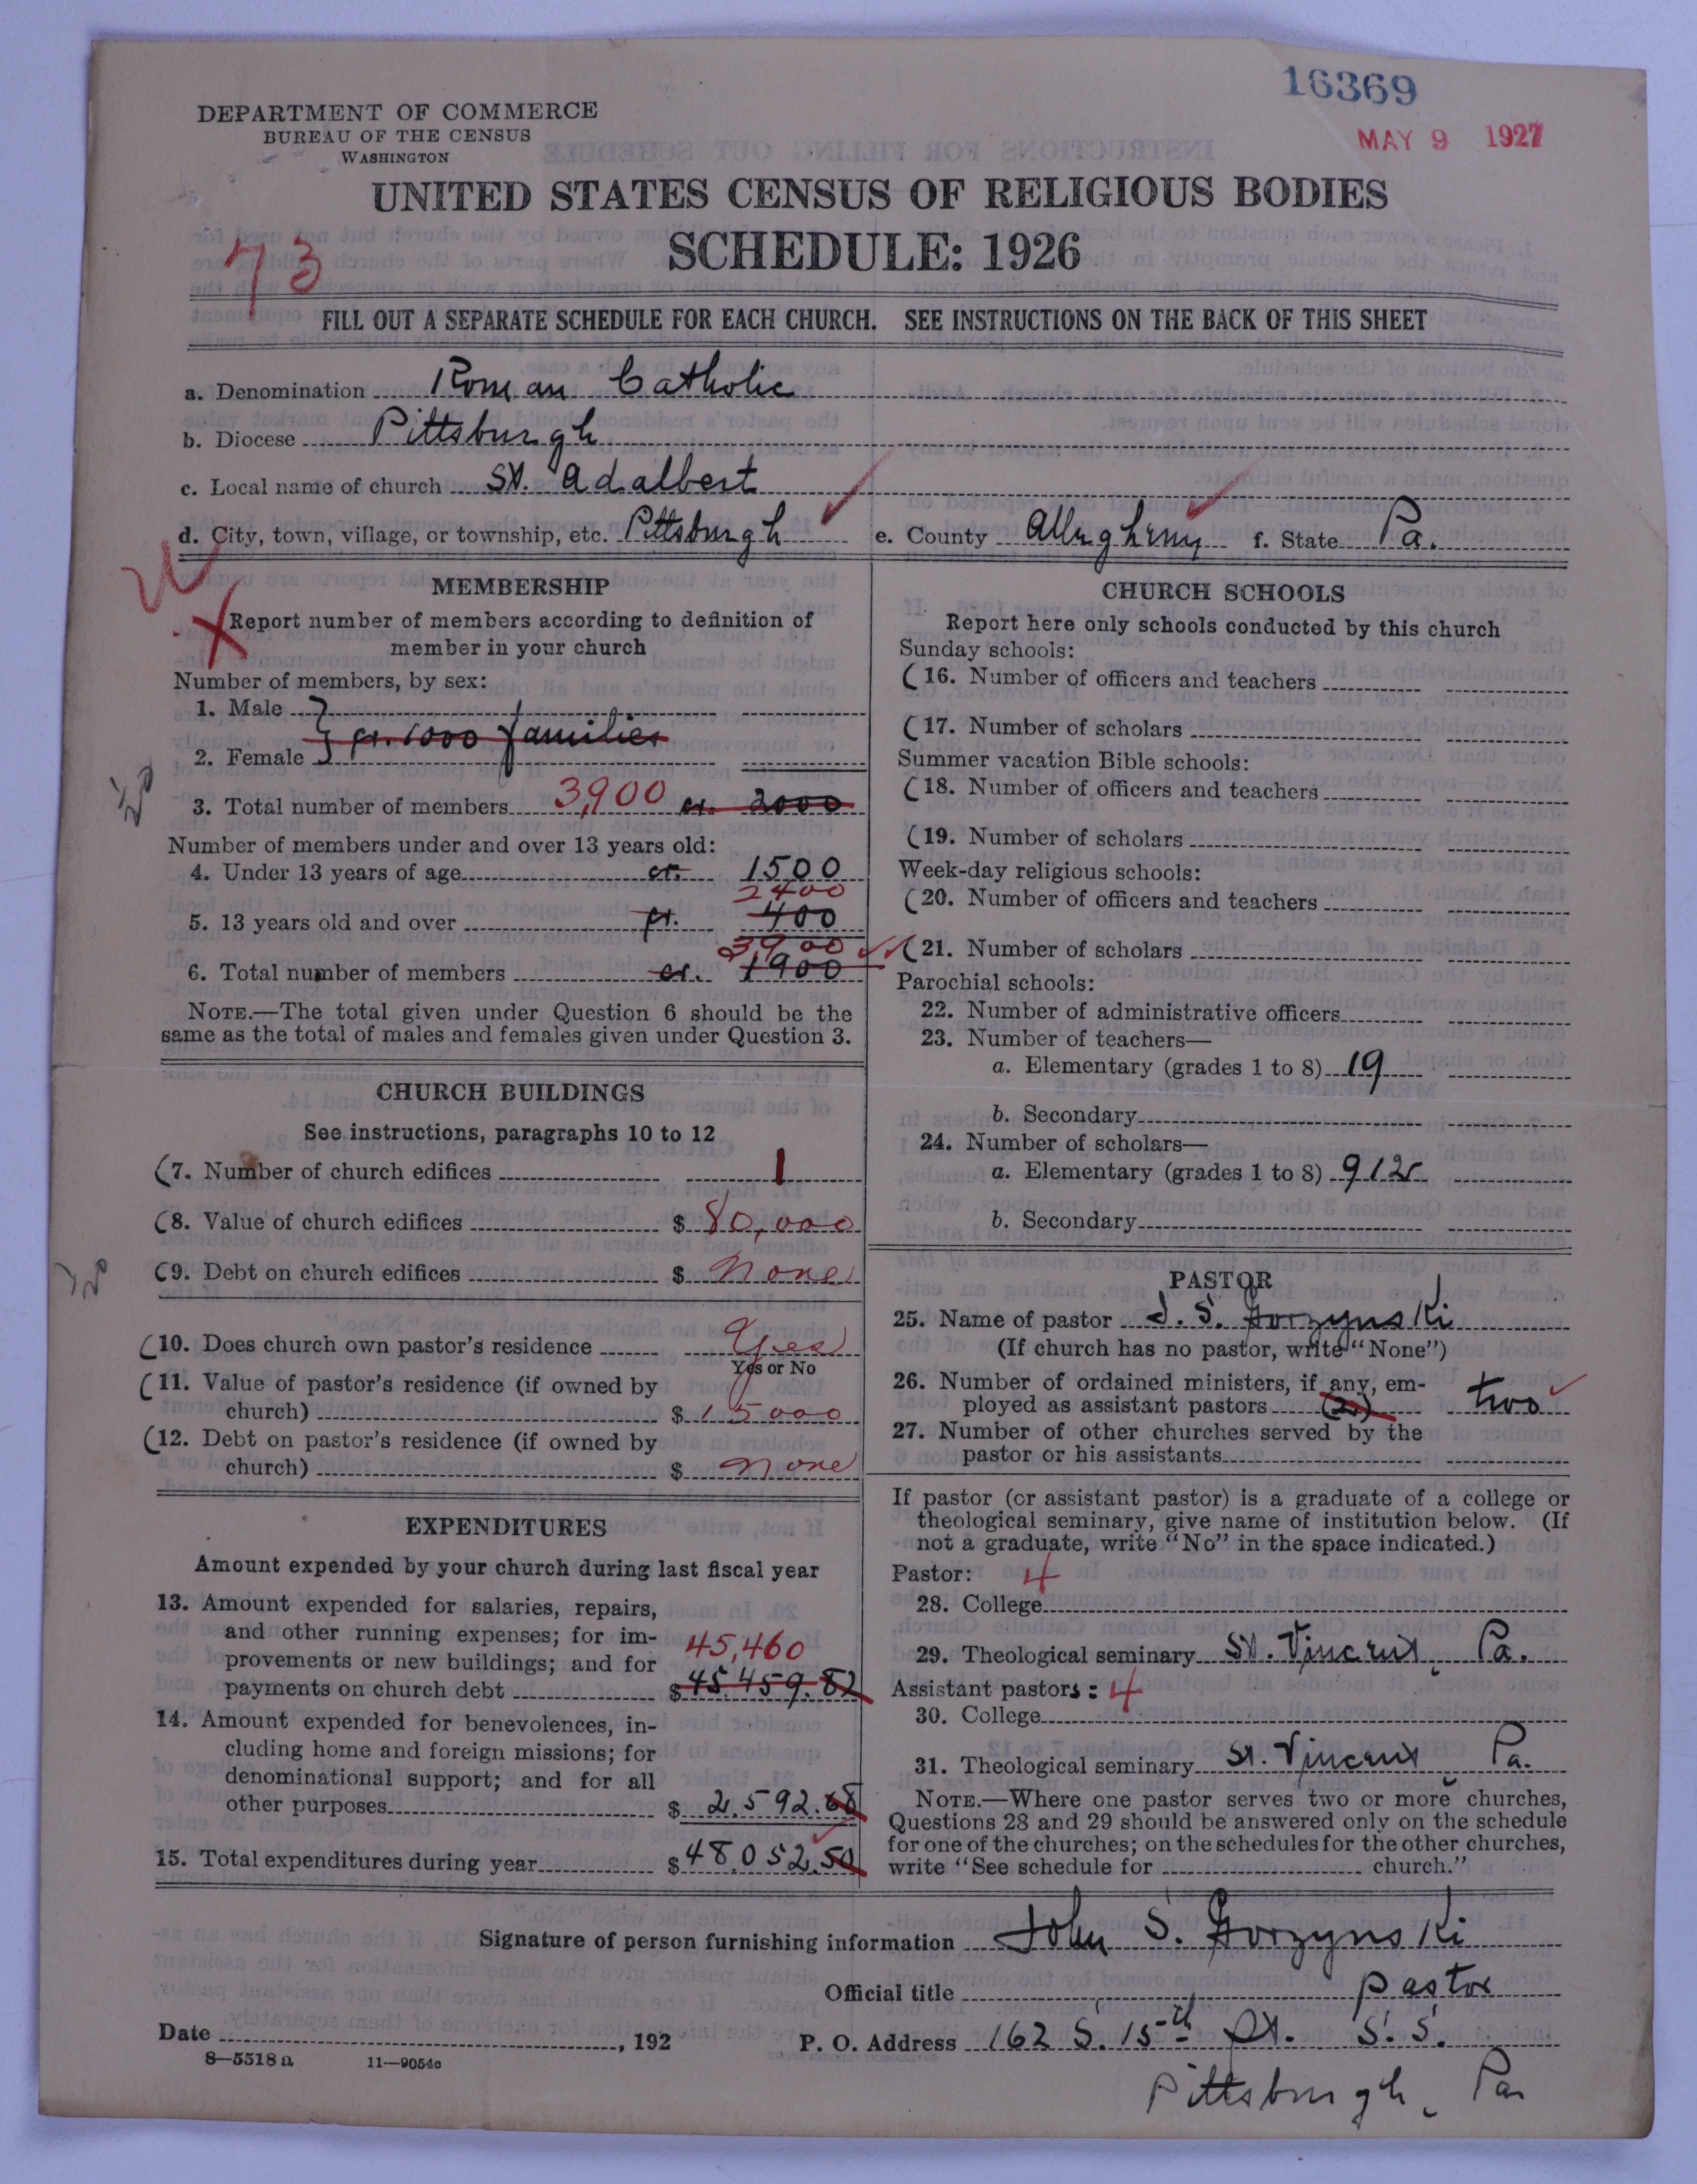 16369
MAY 9 1927
DEPARTMENT OF COMMERCE
BUREAU OF THE CENSUS
WASHINGTON
UNITED STATES CENSUS OF RELIGIOUS BODIES
SCHEDULE: 1926
73
FILL OUT A SEPARATE SCHEDULE FOR EACH CHURCH. SEE INSTRUCTIONS ON THE BACK OF THIS SHEET
a. Denomination Roman Catholic
b. Diocese Pittsburgh
c. Local name of church St. Adalbert
d. City, town, village, or township, etc. Pittsburgh e. County Allegheny f. State Pa.
MEMBERSHIP
Report number of members according to definition of
member in your church
Number of members, by sex:
1. Male
2. Female } cr. 1000 families
3. Total number of members 3,900 cr. 2000
Number of members under and over 13 years old:
4. Under 13 years of age cr. 1500
2400
5. 13 years old and over cr. 400
3900
6. Total number of members cr. 1900
NOTE.—The total given under Question 6 should be the
same as the total of males and females given under Question 3.
CHURCH BUILDINGS
See instructions, paragraphs 10 to 12
(7. Number of church edifices 1
(8. Value of church edifices $ 80,000
(9. Debt on church edifices $ None
(10. Does church own pastor's residence Yes
Yes or No
(11. Value of pastor's residence (if owned by
church) $ 15000
(12. Debt on pastor's residence (if owned by
church) $ None
EXPENDITURES
Amount expended by your church during last fiscal year
13. Amount expended for salaries, repairs,
and other running expenses; for im-
45,460
provements or new buildings; and for
payments on church debt $ 45.459.82
14. Amount expended for benevolences, in-
cluding home and foreign missions; for
denominational support; and for all
other purposes $ 2.592.68
15. Total expenditures during year $ 48.052.50
CHURCH SCHOOLS
Report here only schools conducted by this church
Sunday schools:
(16. Number of officers and teachers
(17. Number of scholars
Summer vacation Bible schools:
(18. Number of officers and teachers
(19. Number of scholars
Week-day religious schools:
(20. Number of officers and teachers
(21. Number of scholars
Parochial schools:
22. Number of administrative officers
23. Number of teachers—
a. Elementary (grades 1 to 8) 19
b. Secondary
24. Number of scholars—
a. Elementary (grades 1 to 8) 912
b. Secondary
PASTOR
25. Name of pastor J. S. Gorzynski
(If church has no pastor, write "None")
26. Number of ordained ministers, if any, em-
ployed as assistant pastors (2) two
27. Number of other churches served by the
pastor or his assistants
If pastor (or assistant pastor) is a graduate of a college or
theological seminary, give name of institution below. (If
not a graduate, write "No" in the space indicated.)
Pastor: 4
28. College
29. Theological seminary St. Vincent, Pa.
Assistant pastors: 4
30. College
31. Theological seminary St. Vincent Pa.
NOTE.—Where one pastor serves two or more churches,
Questions 28 and 29 should be answered only on the schedule
for one of the churches; on the schedules for the other churches,
write "See schedule for church."
Signature of person furnishing information John S. Gorzynski
Official title pastor
Date , 192 P. O. Address 162 S. 15th St. S. S.
8—5518 a 11—9054c
Pittsburgh, Pa